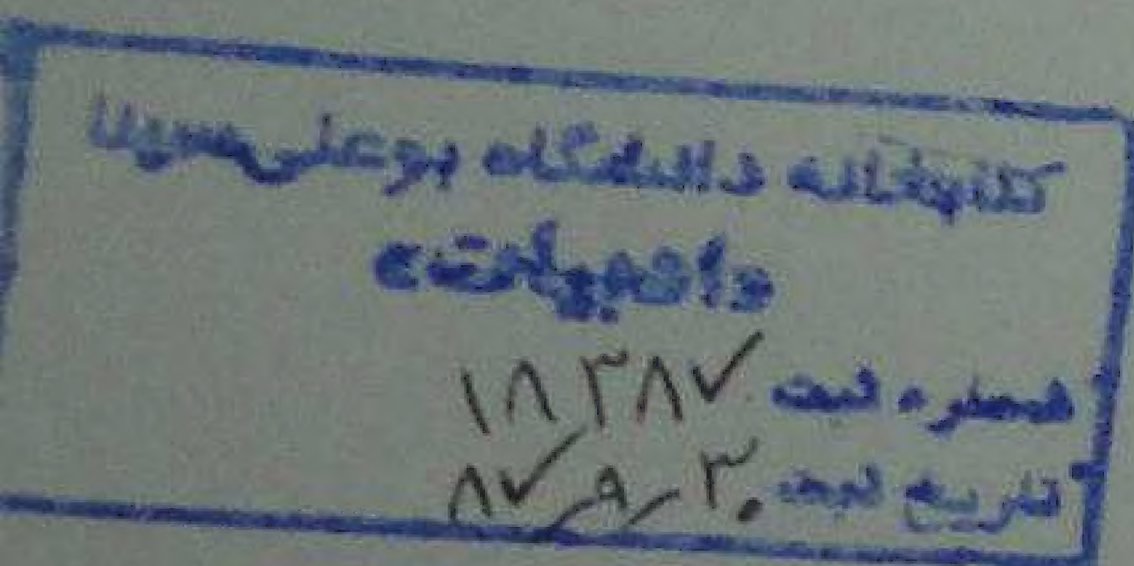 کتابخانه دانشگاه بوعلی سینا
«ادبیات»
شماره ثبت ۱۸۳۸۷
تاریخ ثبت ۸۷/۹/۳۰